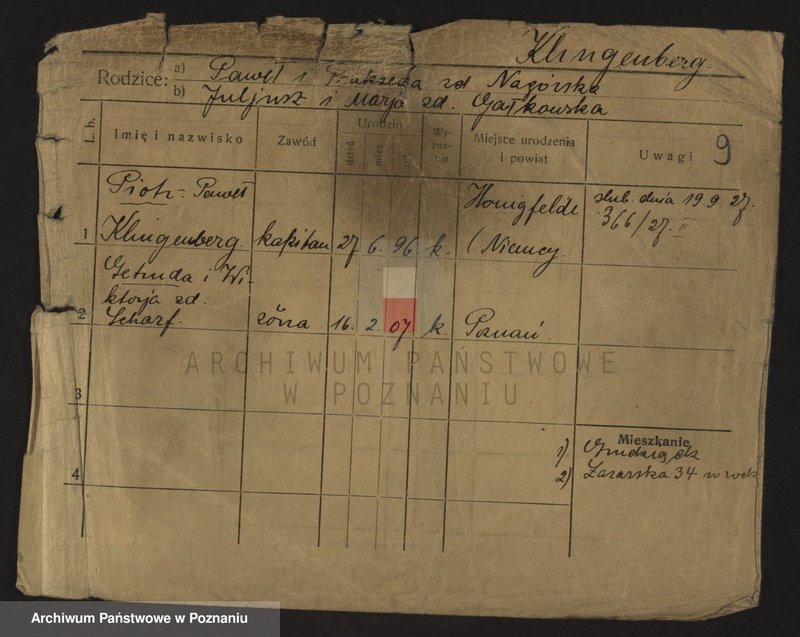 Klingenberg.
Rodzice: a) Paweł i zd Nagórska
b) Juljusz i Marja zd. Gałkowska
L. b. Imię i nazwisko Zawód Urodzin dzień mies. Wyznanie Miejsce urodzenia i powiat Uwagi 9
Piotr-Paweł Honigfelde ślub dnia 19 9. 27.
1 Klingenberg. kapitan 27 6. 96. k. (Niemcy. 366/27. II
i Wi-
ktorja zd.
2 Scharf. żona 16. 2. 07. k. Poznań.
ARCHIWUM PAŃSTWOWE
W POZNANIU
3
Mieszkanie
1) Grudziądz
4 2) 34
Archiwum Państwowe w Poznaniu